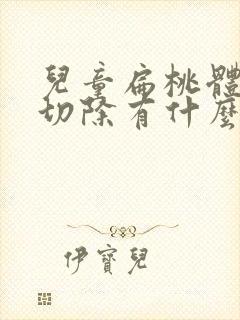 兒童扁桃體
切除有什麼
伊寶兒